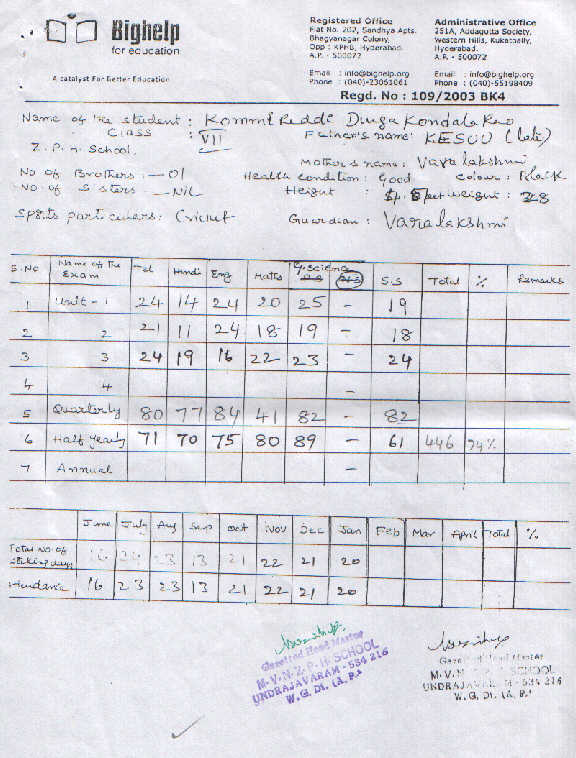 Bighelp
for education
A catalyst For Better Education
Registered Office
Flat No. 202, Sandhya Apts.
Bhagyanagar Colony,
Opp : KPHB, Hyderabad.
A.P. - 500072
Email : info@bighelp.org
Phone : (040)-23061061
Administrative Office
251A, Addagutta Society,
Western Hills, Kukatpally,
Hyderabad.
A.P. - 500072
Email : info@bighelp.org
Phone : (040)-55198409
Regd. No : 109/2003 BK4
Name of the student : Kommi Reddi Durga Kondala Rao
Class : VII Father's name: KESUU (late)
Z.P.H. School.
Mother's name: Varalakshmi
No of Brothers : — 01 Health condition : Good Colour : Black
No. of Sisters — NIL Height : weight : 28
Sports particulars: Cricket Guardian : Varalakshmi
S.No Name of the Exam Tel Hindi Eng Maths G.Science S.S Total % Remarks
1 Unit - 1 24 14 24 20 25 - 19
2 2 21 11 24 18 19 - 18
3 3 24 19 16 22 23 - 24
4 4 -
5 Quarterly 80 77 84 41 82 - 82
6 Half Yearly 71 70 75 80 89 - 61 446 74%
7 Annual -
June July Aug Sep Oct Nov Dec Jan Feb Mar April Total %
Total No. of working days 16 23 13 21 22 21 20
16 23 23 13 21 22 21 20
Gazetted Head Master
M.V.N.Z.P.H. SCHOOL
UNDRAJAVARAM - 534 216
W.G. Dt. (A.P.)
Gazetted Head Master
M.V.N.Z.P.H. SCHOOL
UNDRAJAVARAM - 534 216
W.G. Dt. (A.P.)